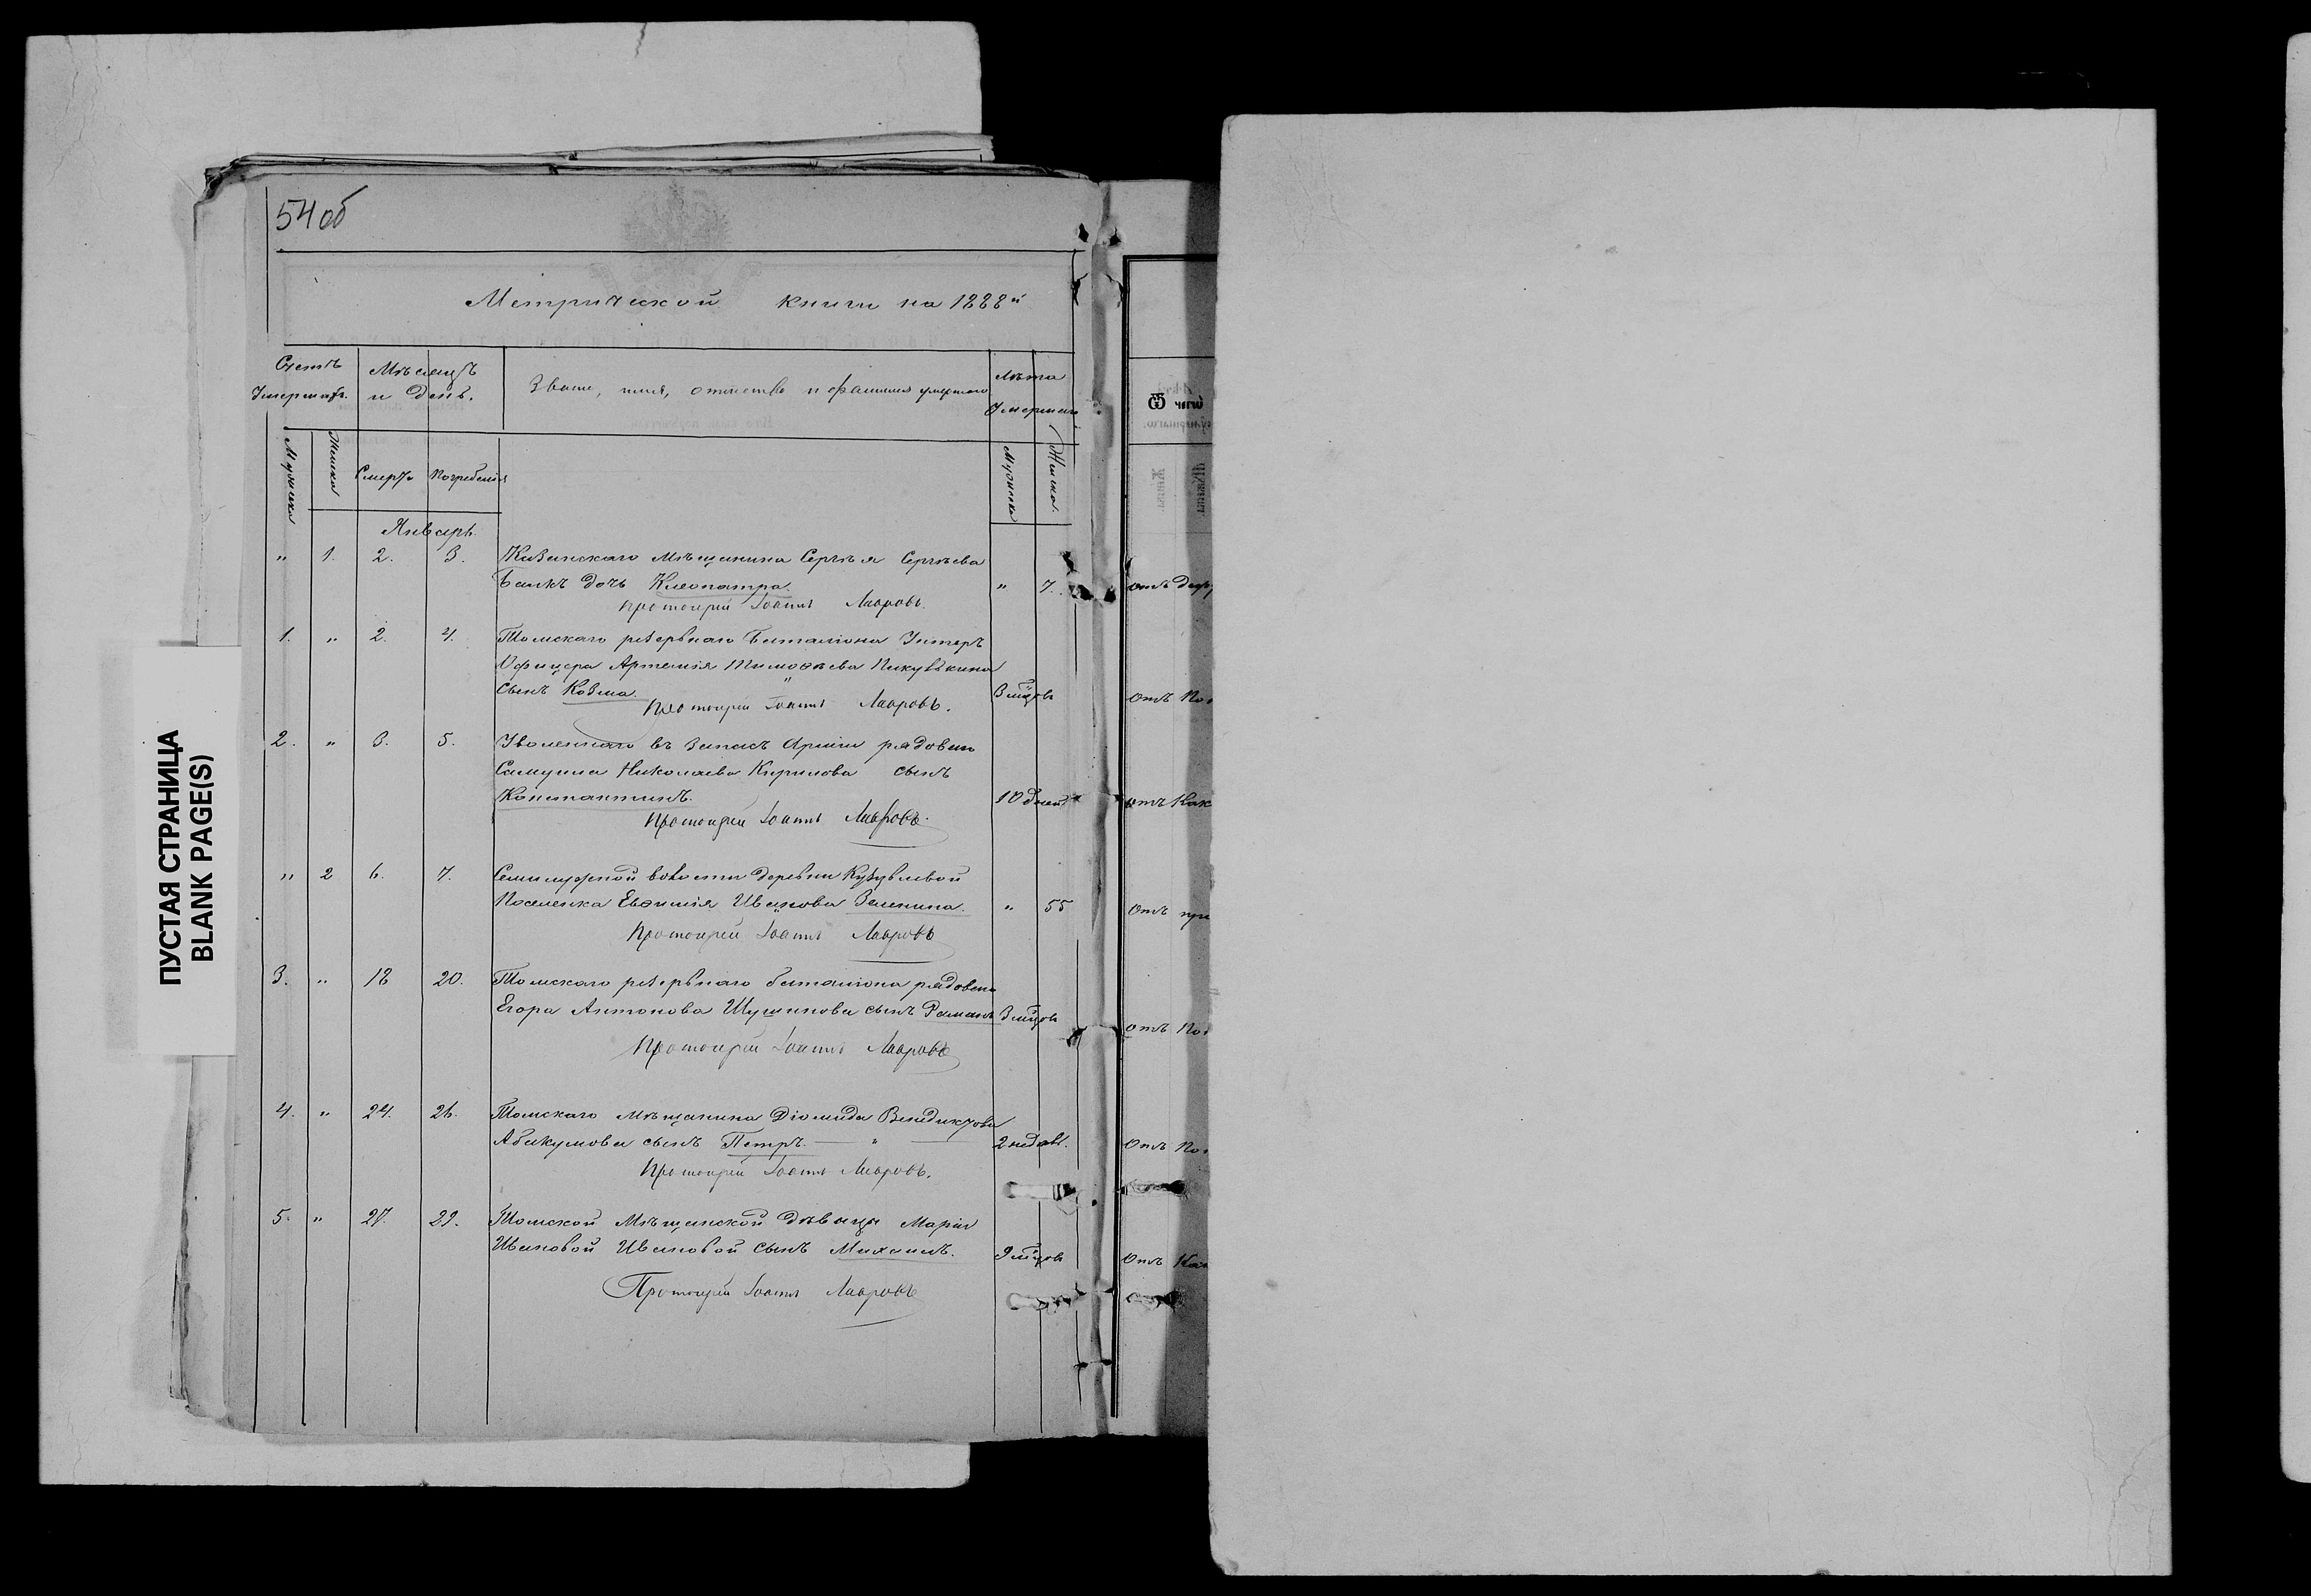 54 об
Метрической книги на 1888й
Счетъ Умершихъ.
Мѣсяцъ и День.
Званіе, имя, отчество и фамилия умершаго
Лѣта Умершаго
Мужска
Женска
Смерти
Погребенія
Мужска
Женска.
Январь.
„ 1. 2. 3. Казанскаго Мѣщанина Сергѣя Сергѣева
дочь Клеопатра. „ 7. отъ
Протоіерей Іоаннъ Лавровъ.
1. „ 2. 4. Томскаго резервнаго Баталіона Унтеръ
Офицера Артемія Тимофѣева
сынъ Козма. 3 мѣцовъ отъ
Протоіерей Іоаннъ Лавровъ.
2. „ 3. 5. Уволеннаго въ запасъ Арміи рядоваго
Самуила Николаева Кирилова сынъ
Константинъ. 10 дней отъ
Протоіерей Іоаннъ Лавровъ.
„ 2 6. 7. Семилужной волости деревни
Поселенка Евфимія Иванова Зеленина. „ 55 Отъ
Протоіерей Іоаннъ Лавровъ
3. „ 18 20. Томскаго резервнаго баталіона рядоваго
Егора Антонова сынъ Романъ 3 мѣцовъ отъ
Протоіерей Іоаннъ Лавровъ
4. „ 24. 26. Томскаго Мѣщанина Діомида Венедиктова
Абакумова сынъ Петръ. — „ — 2 недѣль. Отъ
Протоіерей Іоаннъ Лавровъ.
5. „ 27. 29. Томской Мѣщанской дѣвицы Маріи
Ивановой Ивановой сынъ Михаилъ. 9 мѣцовъ Отъ
Протоіерей Іоаннъ Лавровъ
ПУСТАЯ СТРАНИЦА
BLANK PAGE(S)